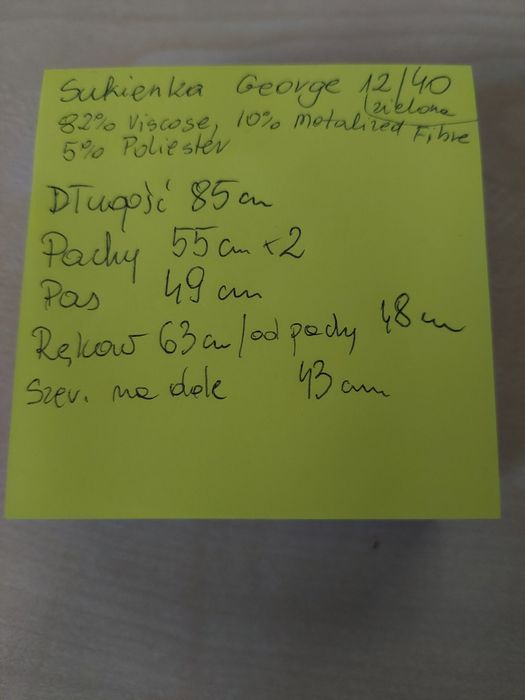 Sukienka George 12/40
zielona
82% Viscose, 10% Metalized Fibre
5% Poliester
Długość 85 cm
Pachy 55 cm x 2
Pas 49 cm
Rękaw 63 cm/od pachy 48 cm
Szer. na dole 43 cm